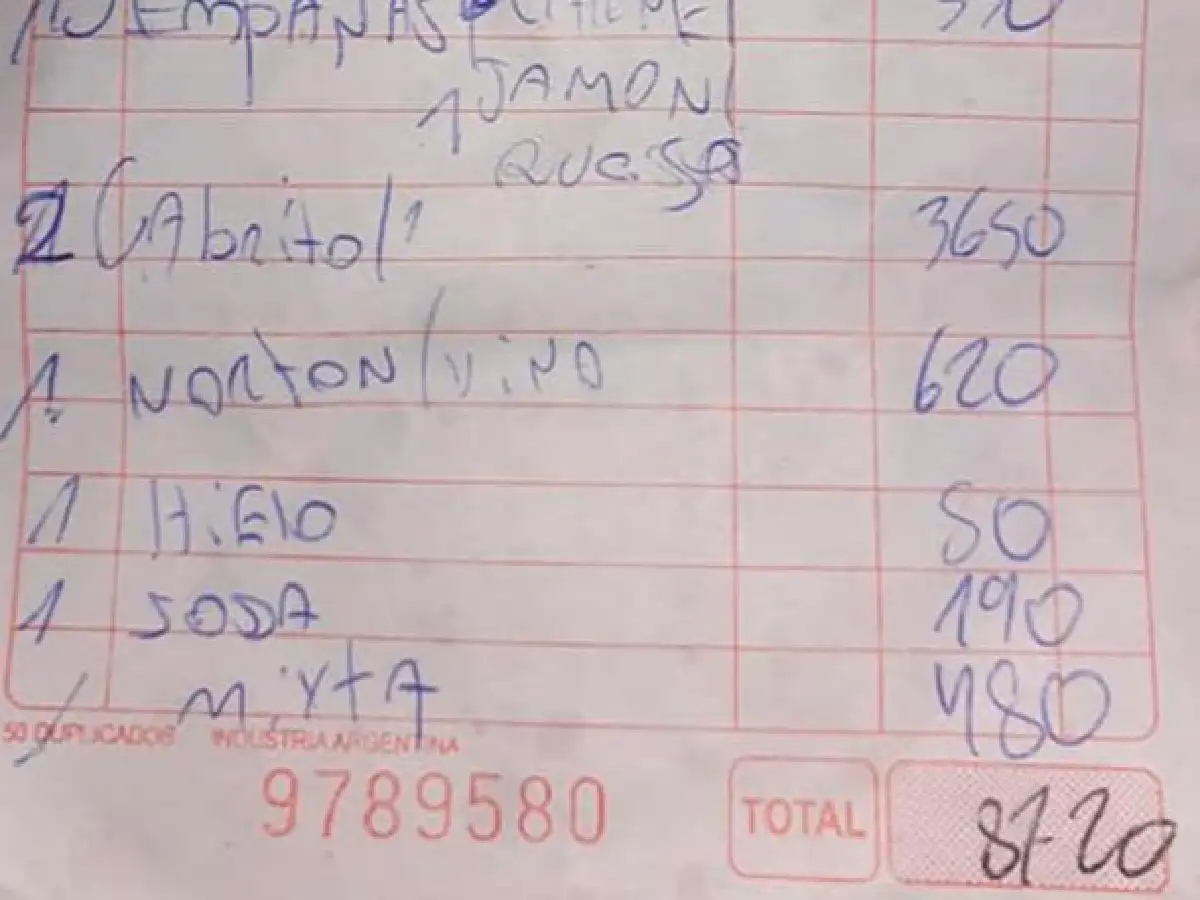 EMPANAS
1 JAMON
QUESO
2 CAbrito 3650
1 NORTON / VINO 620
1 HiElO 50
1 SODA 190
MiXTA 480
50 DUPLICADOS INDUSTRIA ARGENTINA
9789580 TOTAL 8720